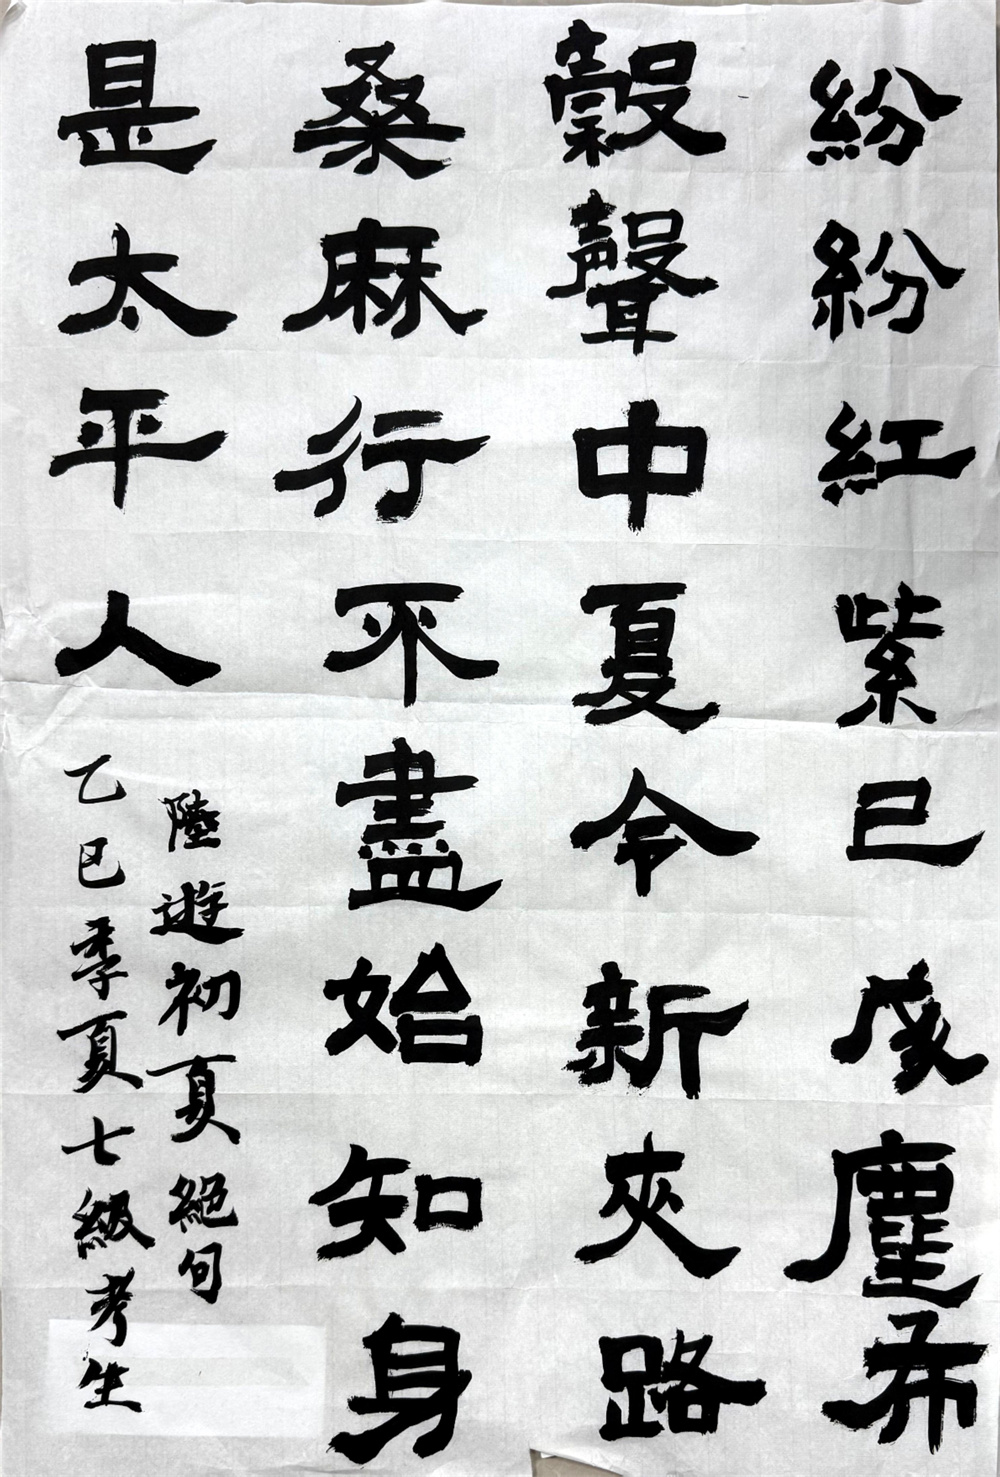 紛紛紅紫已成塵布
穀聲中夏令新夾路
桑麻行不盡始知身
是太平人
陸遊初夏絕句
乙巳季夏七級考生